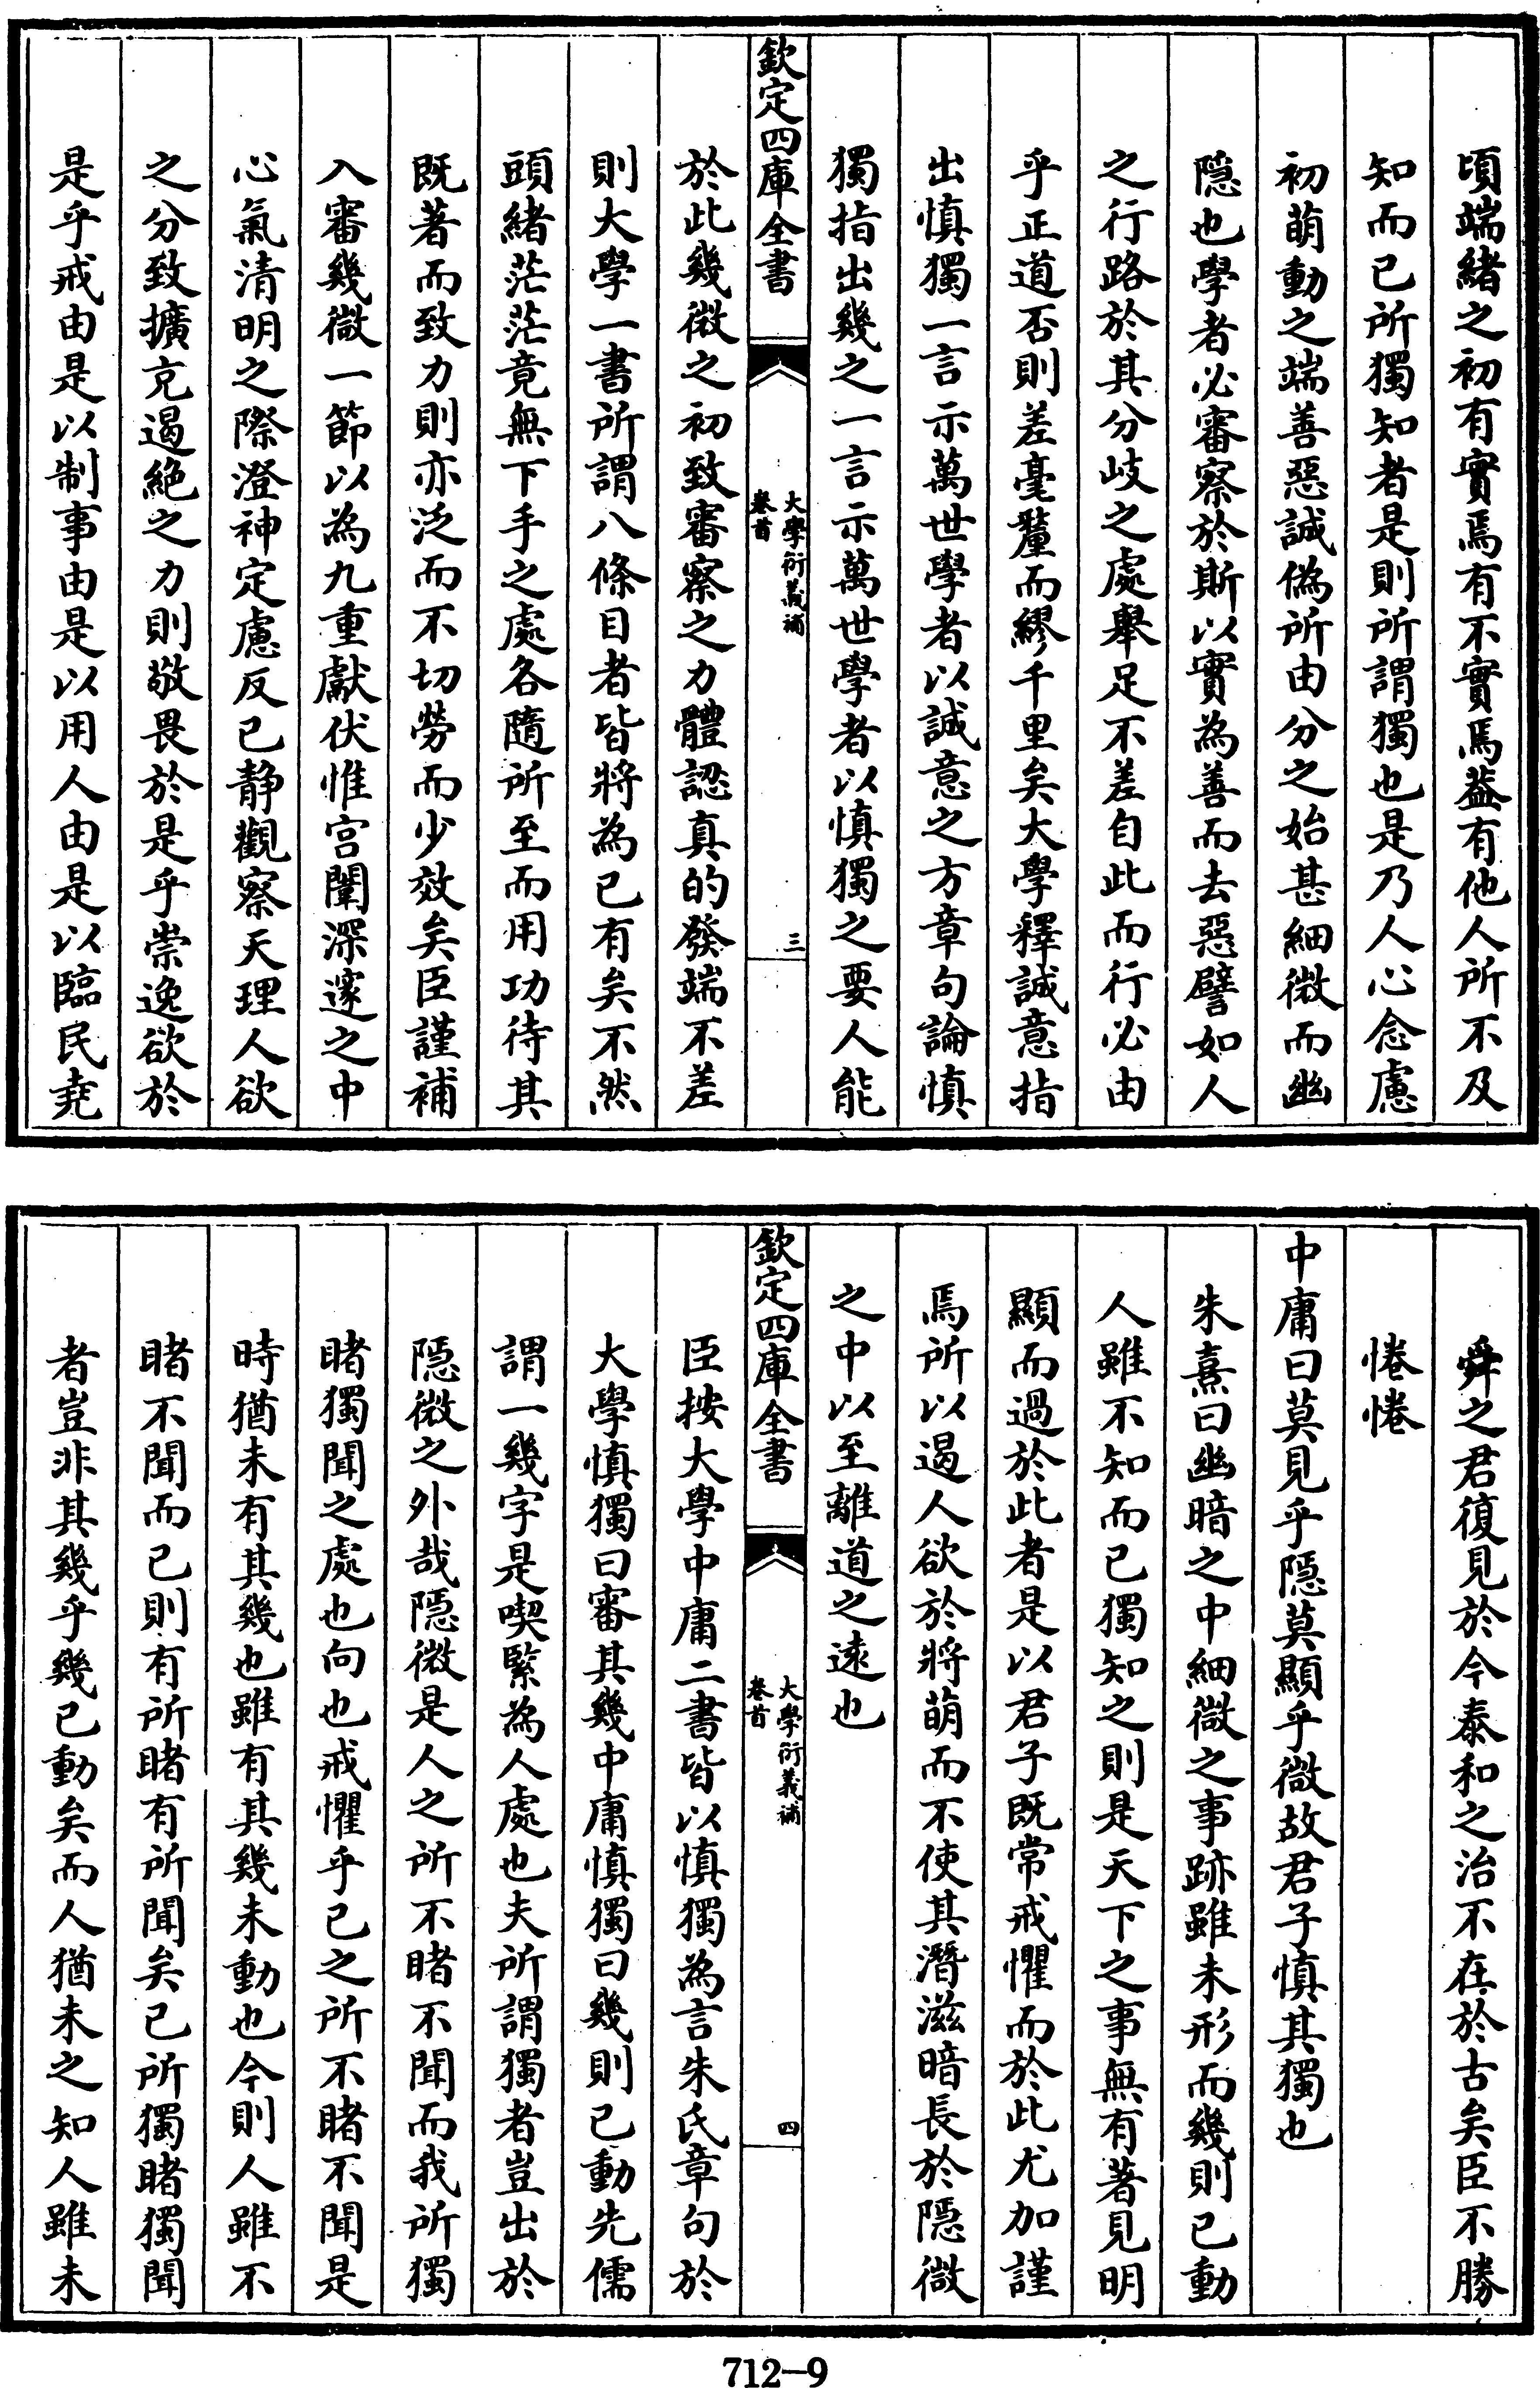 頃端緒之初有實焉有不實焉葢有他人所不及
知而已所獨知者是則所謂獨也是乃人心念慮
初萌動之端善惡誠偽所由分之始甚細微而幽
隠也學者必審察於斯以實為善而去惡譬如人
之行路於其分岐之處舉足不差自此而行必由
乎正道否則差毫釐而繆千里矣大學釋誠意指
出慎獨一言示萬世學者以誠意之方章句論慎
獨指出幾之一言示萬世學者以慎獨之要人能
欽定四庫全書
大學衍義補
卷首
三
於此幾微之初致審察之力體認真的發端不差
則大學一書所謂八條目者皆將為已有矣不然
頭緒茫茫竟無下手之處各隨所至而用功待其
既著而致力則亦泛而不切勞而少效矣臣謹補
入審幾微一節以為九重獻伏惟宮闈深邃之中
心氣清明之際澄神定慮反已静觀察天理人欲
之分致擴充遏絶之力則敬畏於是乎崇逸欲於
是乎戒由是以制事由是以用人由是以臨民堯
舜之君復見於今泰和之治不在於古矣臣不勝
惓惓
中庸曰莫見乎隠莫顯乎微故君子慎其獨也
朱熹曰幽暗之中細微之事跡雖未形而幾則已動
人雖不知而已獨知之則是天下之事無有著見明
顯而過於此者是以君子既常戒懼而於此尤加謹
焉所以遏人欲於將萌而不使其潛滋暗長於隠微
之中以至離道之遠也
欽定四庫全書
大學衍義補
卷首
四
臣按大學中庸二書皆以慎獨為言朱氏章句於
大學慎獨曰審其幾中庸慎獨曰幾則已動先儒
謂一幾字是喫緊為人處也夫所謂獨者豈出於
隠微之外哉隠微是人之所不睹不聞而我所獨
睹獨聞之處也向也戒懼乎已之所不睹不聞是
時猶未有其幾也雖有其幾未動也今則人雖不
睹不聞而已則有所睹有所聞矣已所獨睹獨聞
者豈非其幾乎幾已動矣而人猶未之知人雖未
712-9